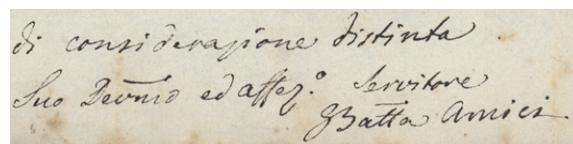 di considerazione distinta
Suo Devmo ed affez.o Servitore
GBatta Amici